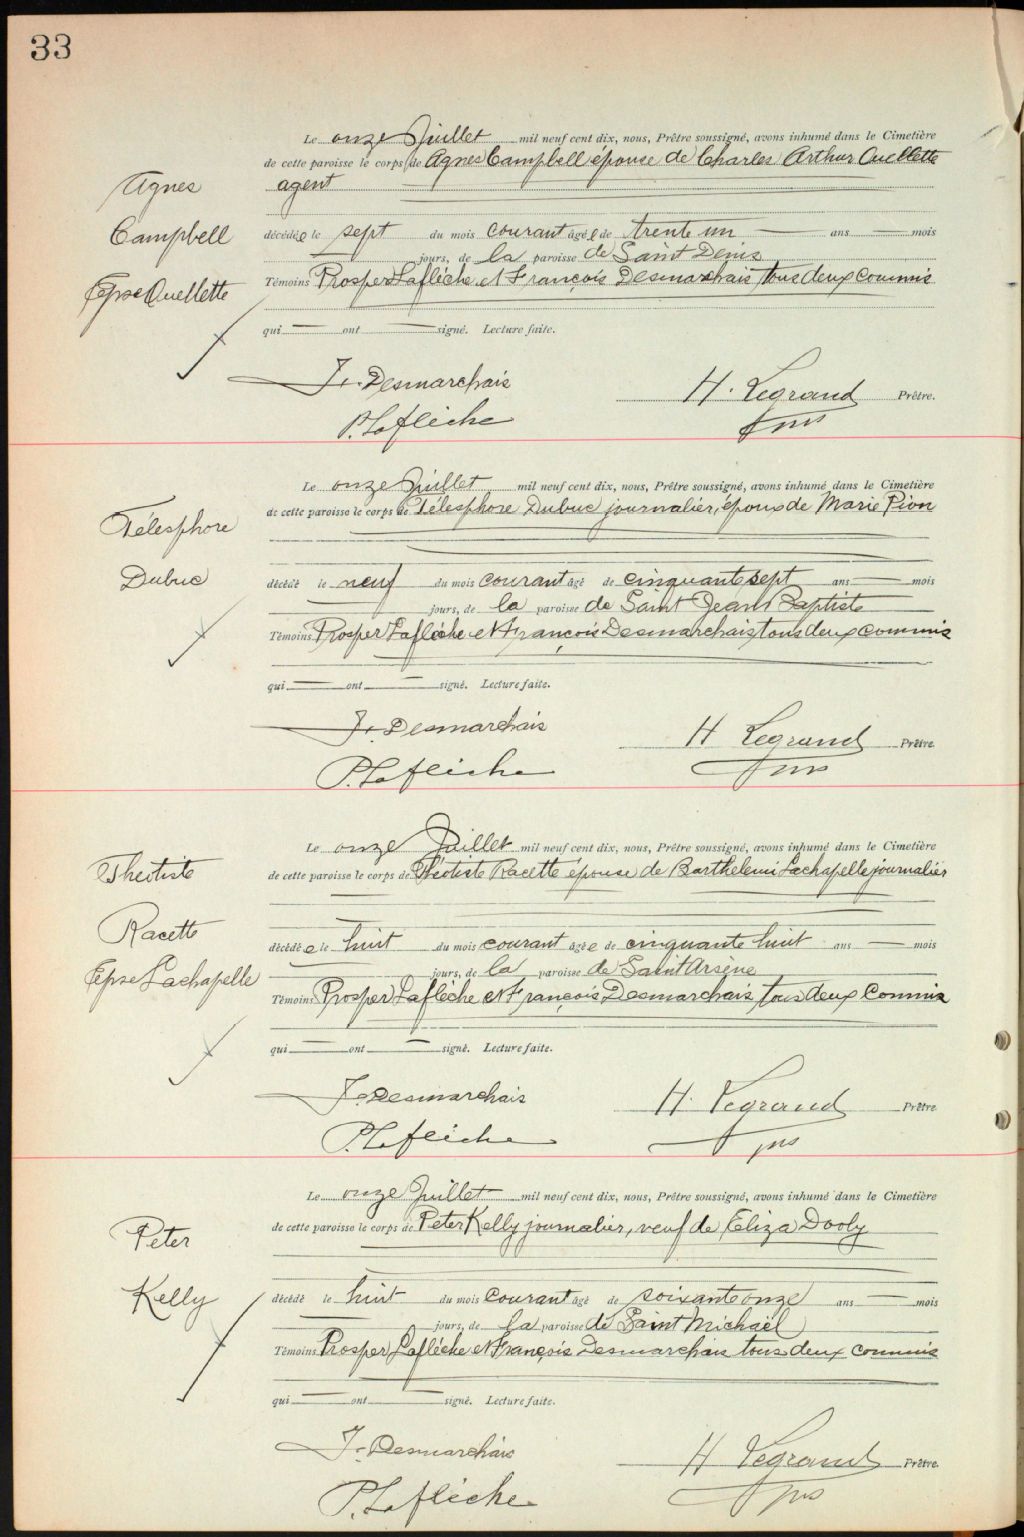 33
Le onze Juillet mil neuf cent dix, nous, Prêtre soussigné, avons inhumé dans le Cimetière
de cette paroisse le corps de Agnes Campbell épouse de Charles Arthur Ouellette
agent
Agnes
Campbell
Epse Ouellette
décédée le sept du mois courant âgée de trente un — ans — mois
jours, de la paroisse de Saint Denis
Témoins Prosper Laflèche et François Desmarchais, tous deux commis
qui — ont — signé. Lecture faite.
F. Desmarchais
H. Legrand Prêtre.
P. Laflèche
Le onze Juillet mil neuf cent dix, nous, Prêtre soussigné, avons inhumé dans le Cimetière
de cette paroisse le corps de Télesphore Dubuc journalier, époux de Marie Pion
Télesphore
Dubuc
décédé le neuf du mois courant âgé de cinquante sept ans — mois
— jours, de la paroisse de Saint Jean Baptiste
Témoins Prosper Laflèche et François Desmarchais, tous deux commis
qui — ont — signé. Lecture faite.
F. Desmarchais
H Legrand Prêtre
P. Laflèche
Le onze Juillet mil neuf cent dix, nous, Prêtre soussigné, avons inhumé dans le Cimetière
de cette paroisse le corps de Théotiste Racette épouse de Barthelemi Lachapelle journalier
Theotiste
Racette
Epse Lachapelle
décédée le huit du mois courant âgée de cinquante huit ans — mois
jours, de la paroisse de Saint Arsène
Témoins Prosper Laflèche et François Desmarchais, tous deux commis
qui — ont — signé. Lecture faite.
F. Desmarchais
H. Legrand Prêtre
P. Laflèche
Le onze Juillet mil neuf cent dix, nous, Prêtre soussigné, avons inhumé dans le Cimetière
de cette paroisse le corps de Peter Kelly journalier, veuf de Eliza Dooly
Peter
Kelly
décédé le huit du mois courant âgé de soixante onze ans — mois
— jours, de la paroisse de Saint Michaël
Témoins Prosper Laflèche et François Desmarchais tous deux commis
qui — ont — signé. Lecture faite.
F. Desmarchais
H Legrand Prêtre.
P. Laflèche